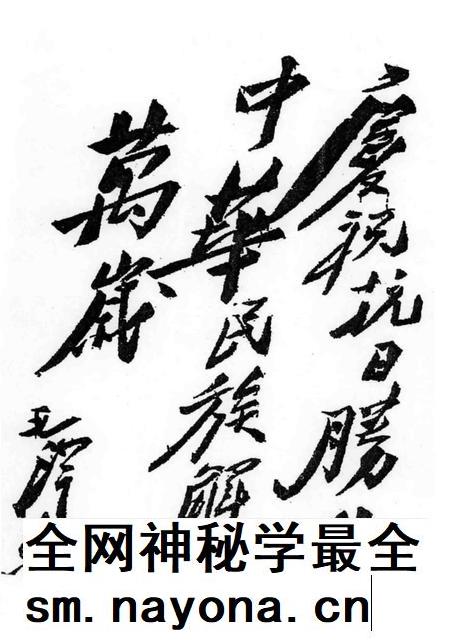 慶祝抗日勝
中華民族解
萬歲
毛澤
全网神秘学最全
sm.nayona.cn